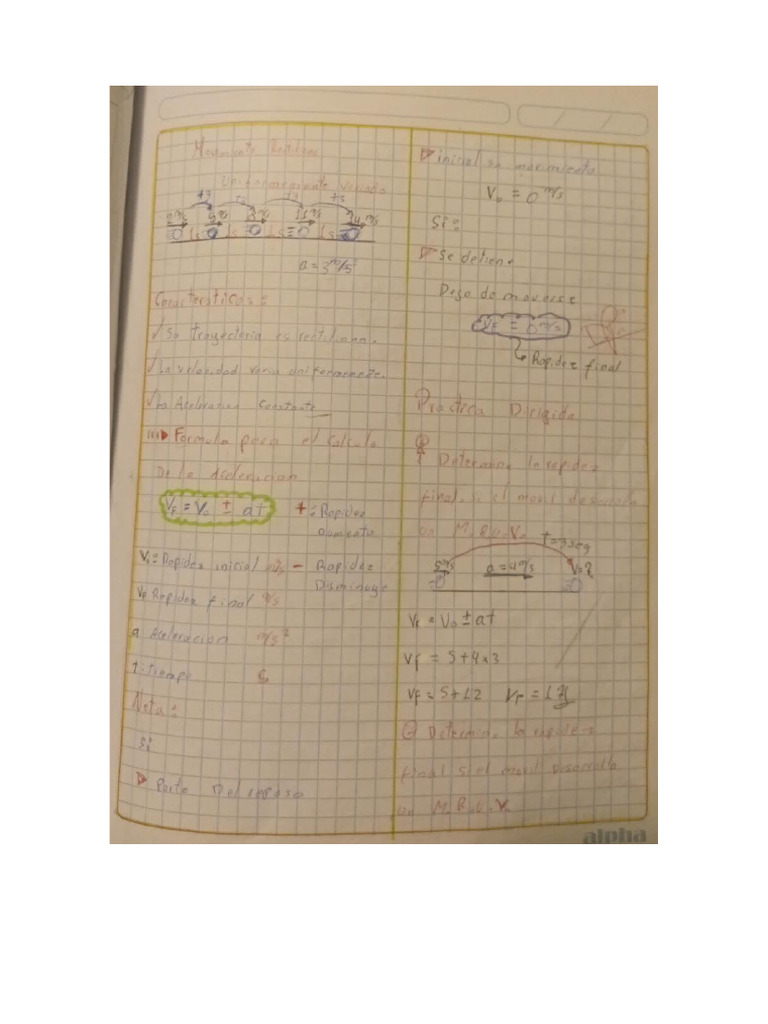 Movimiento Rectilineo
Uniformemente Variado
+3 +3 +3 +3
5 m/s 8 m/s 11 m/s 14 m/s
1s 1s 1s 1s
a = 3 m/s²
Caracteristicas:
✓ Su trayectoria es rectilinea.
✓ La velocidad varia uniformemente.
✓ La Aceleracion Constante
Formula para el Calculo
De la Aceleracion
Vf = Vo ± at
+ = Rapidez
aumenta
Vo = Rapidez inicial m/s
- Rapidez
Disminuye
Vf Rapidez final m/s
a Aceleracion m/s²
t = tiempo s
Nota:
Si:
Parte Del reposo
inicial su movimiento
Vo = 0 m/s
Si:
Se detiene
Dejo de moverse
VF = 0 m/s
Rapidez final
Practica Dirigida
1 Determina la rapidez
final si el movil desarrolla
un M.R.U.V.
t=3seg
5 m/s a = 4 m/s V=?
Vf = Vo ± at
Vf = 5+4x3
Vf = 5+12 VF = 17
2 Determina la rapidez
final si el movil Desarrolla
un M.R.U.V.
alpha